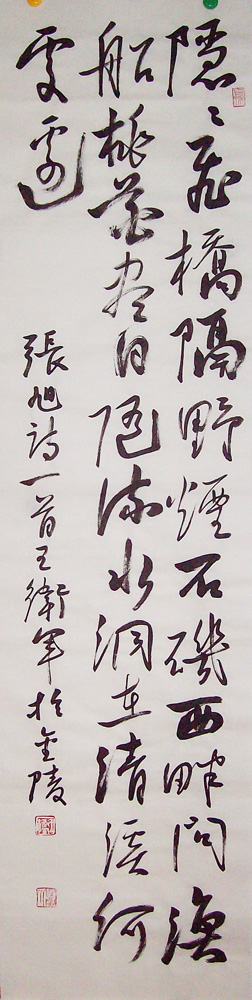 隱〻飛橋隔野煙石磯西畔問漁
船桃花盡日隨流水洞在清溪何
處邊
張旭詩一首王衛軍於金陵